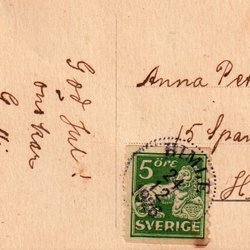 God Jul!
önskar
Anna Pet
15 Span
H
5 ÖRE
SVERIGE